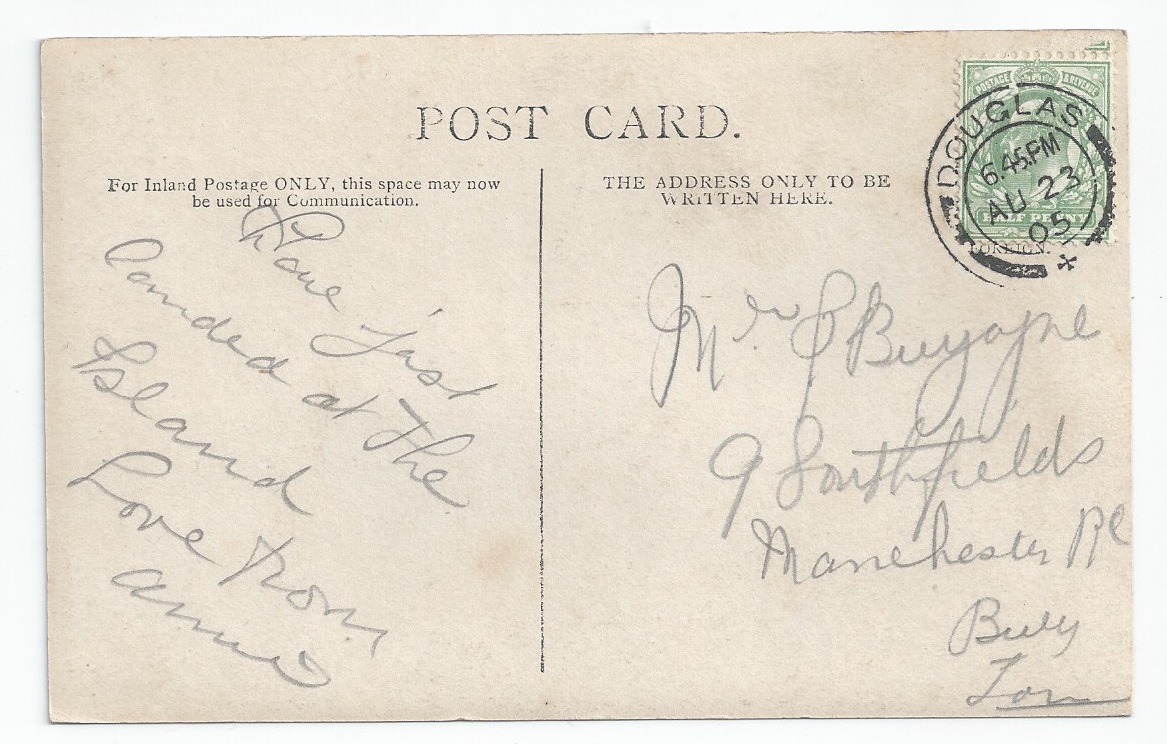 POST CARD.
For Inland Postage ONLY, this space may now
be used for Communication.
THE ADDRESS ONLY TO BE
WRITTEN HERE.
POSTAGE & REVENUE
HALF PENNY
DOUGLAS
6.45PM
AU 23
05
FOREIGN.
Have Just
Landed at The
Island
Love From
Annie
Mr
9 Southfields
Manchester Rd
Bury